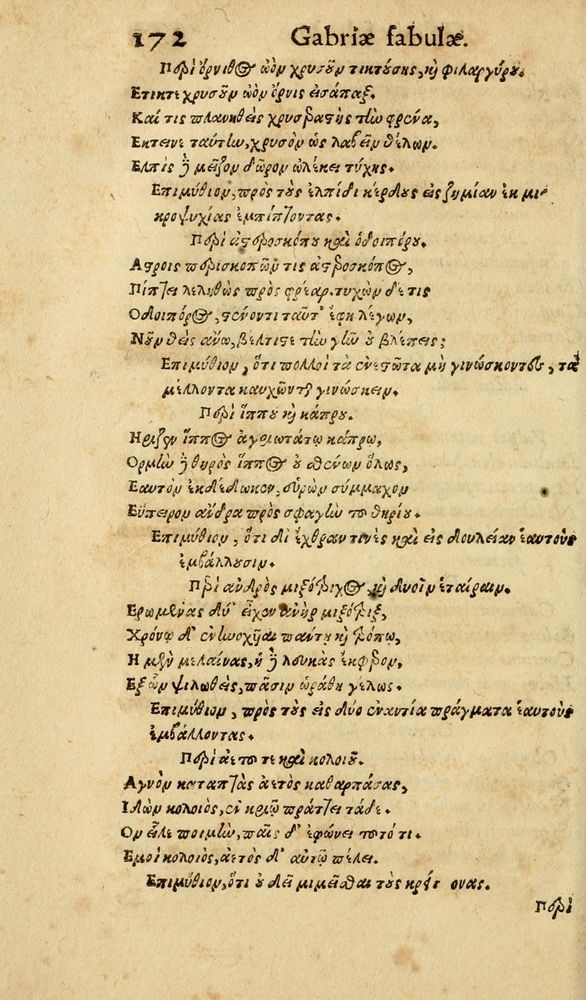 172 Gabriæ fabulæ.
Περὶ ὄρνιθος ὠὸν χρυσοῦν τικτούσης, καὶ φιλαργύρου.
Ετικτε χρυσοῦν ὠὸν ὄρνις εἰσάπαξ.
Καί τις πλανηθεὶς χρυσεραστὴς τὴν φρένα,
Εκτεινε ταύτην, χρυσὸν ὡς λαβεῖν θέλων.
Ελπὶς δὲ μεῖζον δῶρον ὠλέκει τύχης.
Επιμύθιον, πρὸς τοὺς ἐλπίδι κέρδους εἰς ζημίαν ἐκ μι-
κροψυχίας ἐμπίπτοντας.
Περὶ ἀστροσκόπου καὶ ὁδοιπόρου.
Αστροις περισκοπῶν τις ἀστροσκόπος,
Πίπτει λεληθὼς πρὸς φρέαρ. τυχὼν δέ τις
Οδοιπόρος, στένοντι ταῦτ' ἔφη λέγων,
Νοῦν θεὶς ἄνω, βέλτιστε τὴν γῆν οὐ βλέπεις;
Επιμύθιον, ὅτι πολλοὶ τὰ ἐνεστῶτα μὴ γινώσκοντες, τὰ
μέλλοντα καυχῶνται γινώσκειν.
Περὶ ἵππου καὶ κάπρου.
Ηριζεν ἵππος ἀγριωτάτῳ κάπρῳ,
Ορμὴν δὲ θυρὸς ἵππος οὐ σθένων ὅλως,
Εαυτὸν ἐκδέδωκεν, εὑρὼν σύμμαχον
Εὔπειρον ἄνδρα πρὸς σφαγὴν τοῦ θηρίου.
Επιμύθιον, ὅτι δι' ἔχθραν τινὲς καὶ εἰς δουλείαν ἑαυτοὺς
ἐμβάλλουσιν.
Περὶ ἀνδρὸς μιξότριχος, καὶ δυοῖν ἑταίραιν.
Ερωμένας δύ' εἶχεν ἀνὴρ μιξόθριξ,
Χρόνῳ δ' παντὶ καὶ τρόπῳ,
Η μὲν μελαίνας, ἡ δὲ λευκὰς ἐκφέρον,
Εξ ὧν ψιλωθεὶς, πᾶσιν ὡράθη γέλως.
Επιμύθιον, πρὸς τοὺς εἰς δύο ἐναντία πράγματα ἑαυτοὺς
ἐμβάλλοντας.
Περὶ ἀετοῦ τε καὶ κολοιοῦ.
Αγνὸν καταπτὰς ἀετὸς καθαρπάσας,
Ιδὼν κολοιὸς, ἐν κριῷ πράττει τάδε.
Ον εἷλε ποιμὴν, παῖς δ' ἐφώνει ποτό τι.
Εμοὶ κολοιὸς, ἀετὸς δ' αὑτῷ πέλει.
Επιμύθιον, ὅτι οὐ δεῖ μιμεῖσθαι τοὺς κρείττονας.
Περὶ